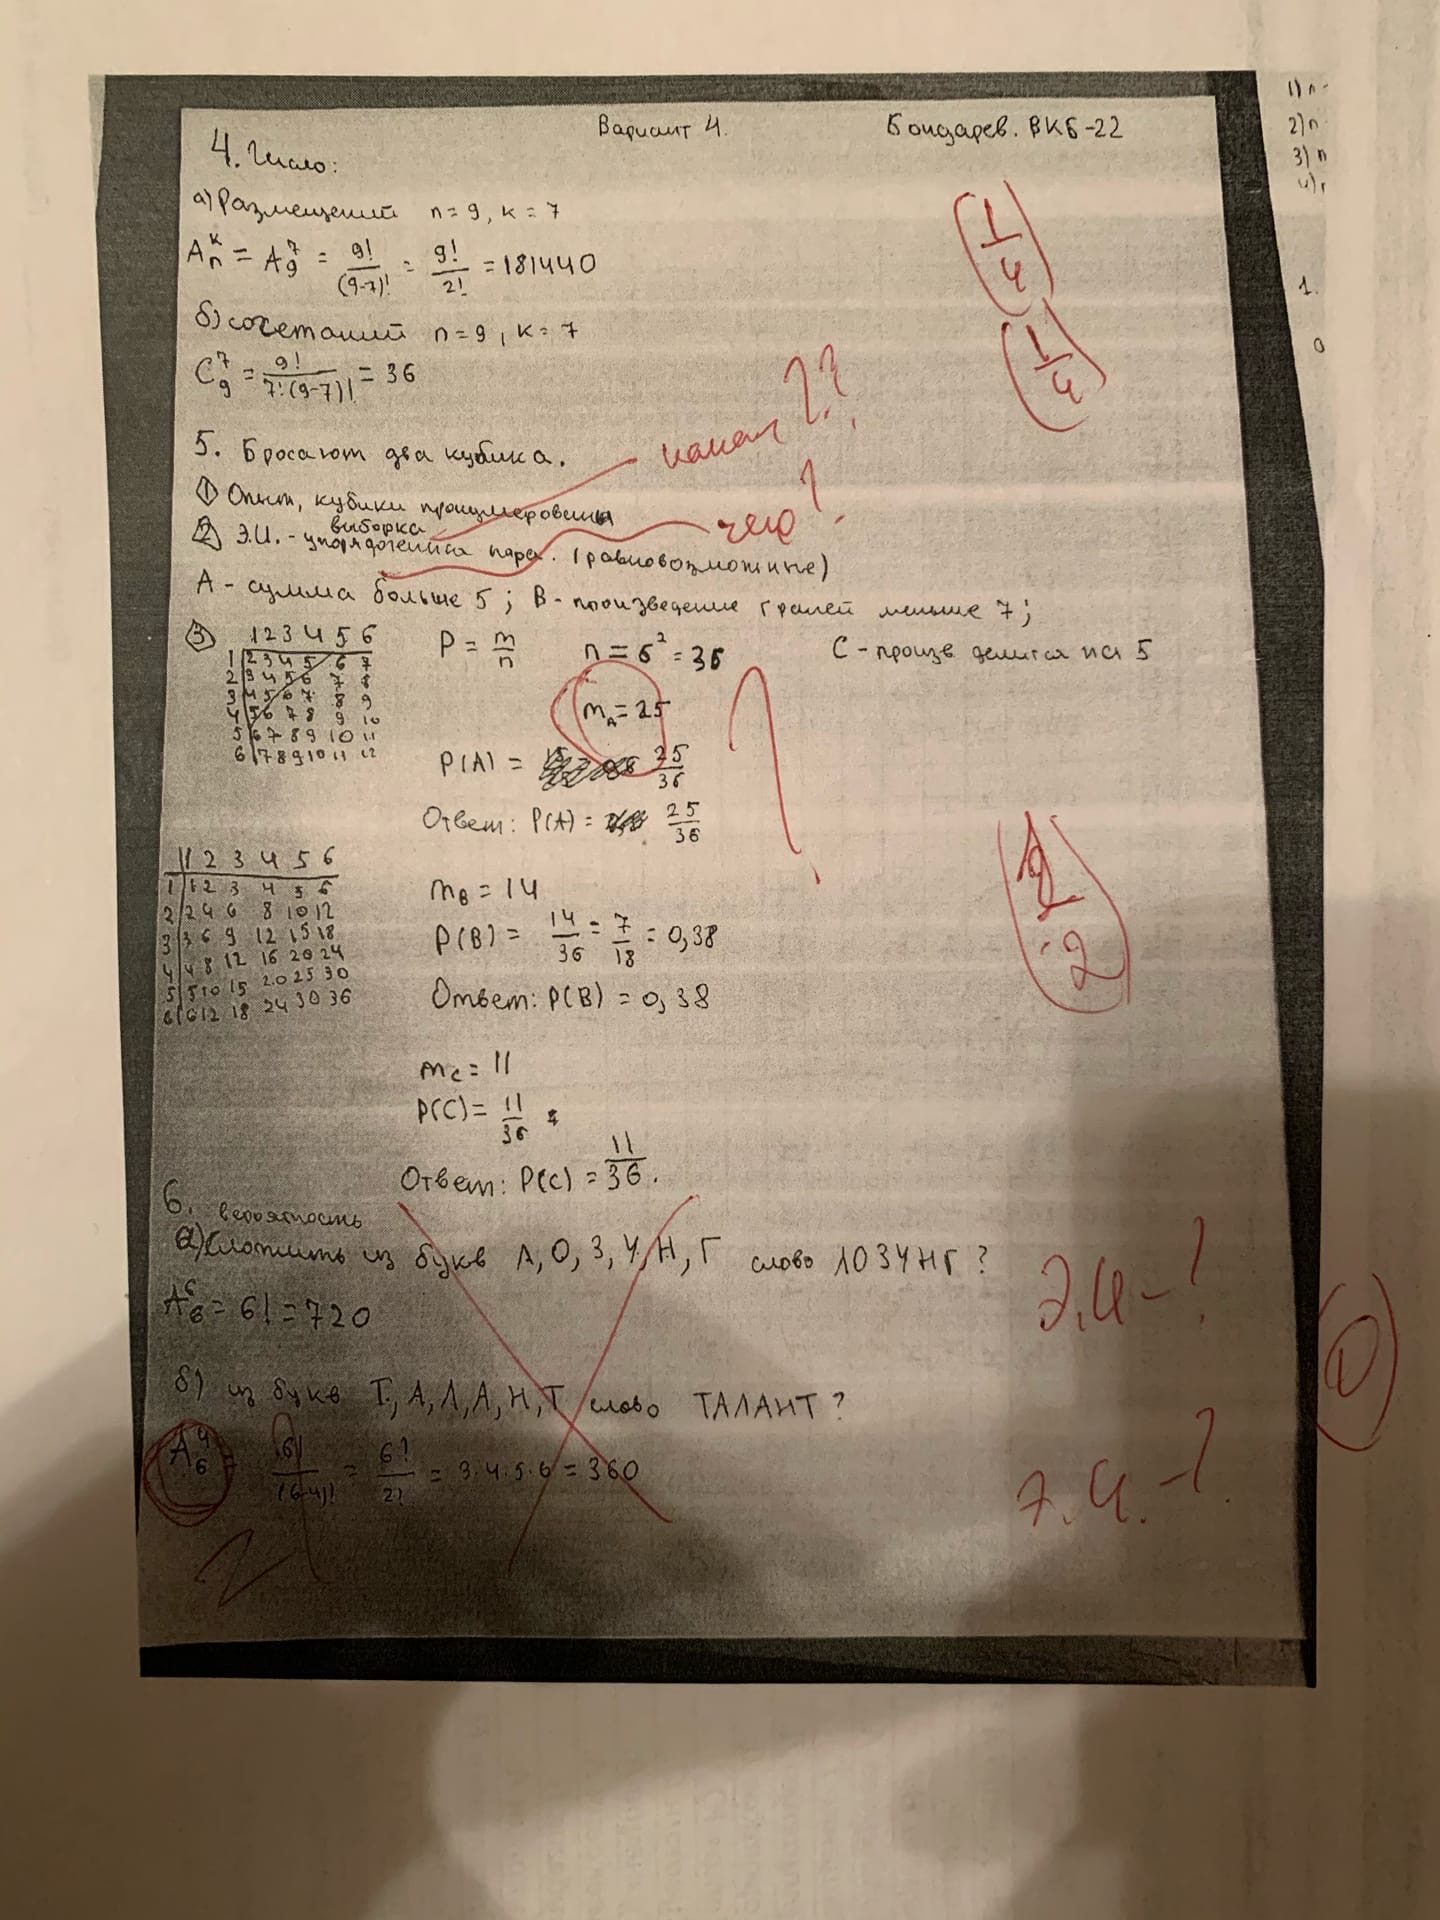 Вариант 4. Бондарев. ВКБ-22
4. Число:
а) Размещений n = 9, k = 7
A_n^k = A_9^7 = 9!/(9-7)! = 9!/2! = 181440
1/4
б) сочетаний n = 9, k = 7
C_9^7 = 9!/7!·(9-7)! = 36
1/4
5. Бросают два кубика.
какая ??
① Опыт, кубики пронумерованы
② Э.И. - упорядоченная выборка пара. (равновозможные)
чего?
A - сумма больше 5; B - произведение граней меньше 7;
C - произв делится на 5
③
1 2 3 4 5 6
1 2 3 4 5 6 7
2 3 4 5 6 7 8
3 4 5 6 7 8 9
4 5 6 7 8 9 10
5 6 7 8 9 10 11
6 7 8 9 10 11 12
P = m/n n = 6² = 36
m_A = 25
?
P(A) = 25/36
Ответ: P(A) = 25/36
1 2 3 4 5 6
1 1 2 3 4 5 6
2 2 4 6 8 10 12
3 3 6 9 12 15 18
4 4 8 12 16 20 24
5 5 10 15 20 25 30
6 6 12 18 24 30 36
m_B = 14
P(B) = 14/36 = 7/18 = 0,38
Ответ: P(B) = 0,38
2
m_C = 11
P(C) = 11/36
Ответ: P(C) = 11/36.
6. вероятность
а) Сложить из букв Л, О, З, У, Н, Г слово ЛОЗУНГ?
A_6^6 = 6! = 720
Э.И - ?
0
б) из букв Т, А, Л, А, Н, Т слово ТАЛАНТ?
A_6^4 = 6!/(6-4)! = 6!/2! = 3·4·5·6 = 360
Э.И. - ?
1) n
2) n
3) n
4)
1.